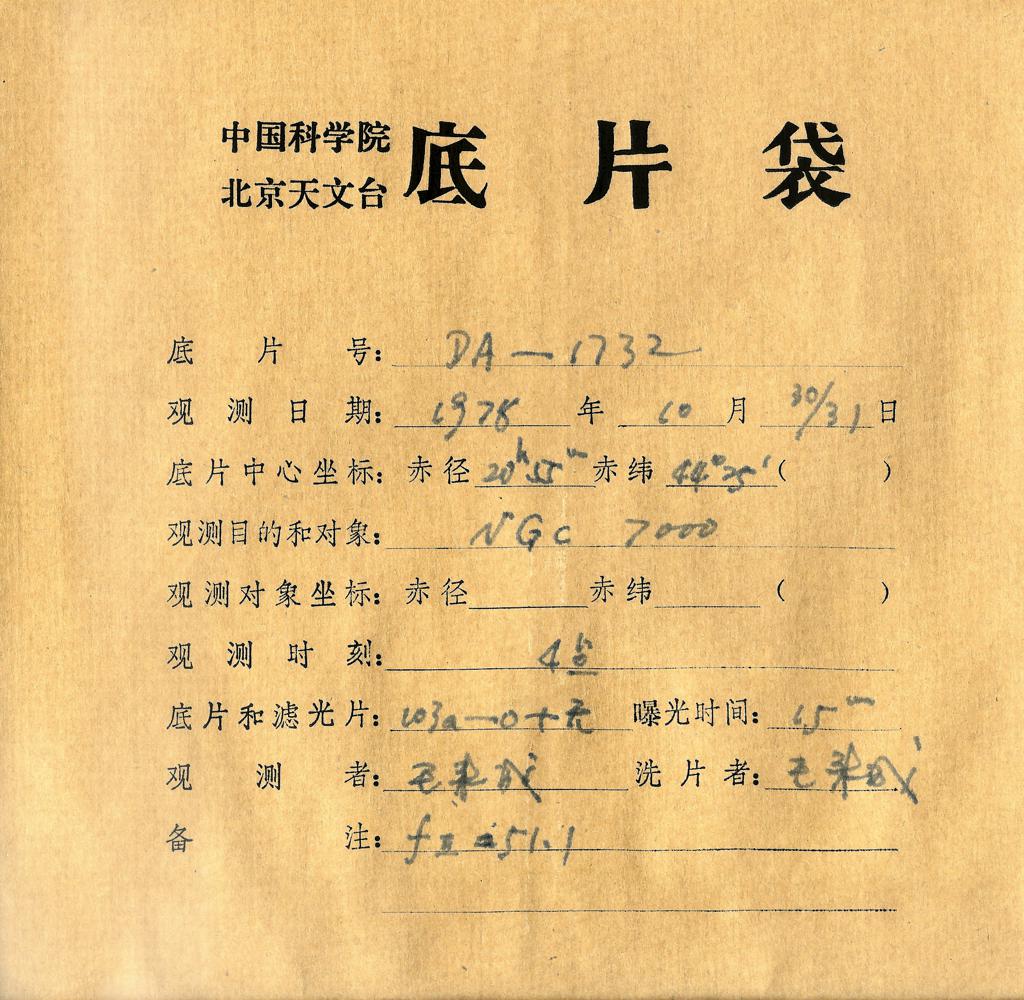 中国科学院
北京天文台
底片袋
底片号: DA-1732
观测日期: 1978 年 10 月 30/31 日
底片中心坐标: 赤径 20h55m 赤纬 44°25' ( )
观测目的和对象: NGC 7000
观测对象坐标: 赤径 赤纬 ( )
观测时刻: 4
底片和滤光片: 103a-O+无 曝光时间: 15m
观测者: 洗片者:
备注: 51.1